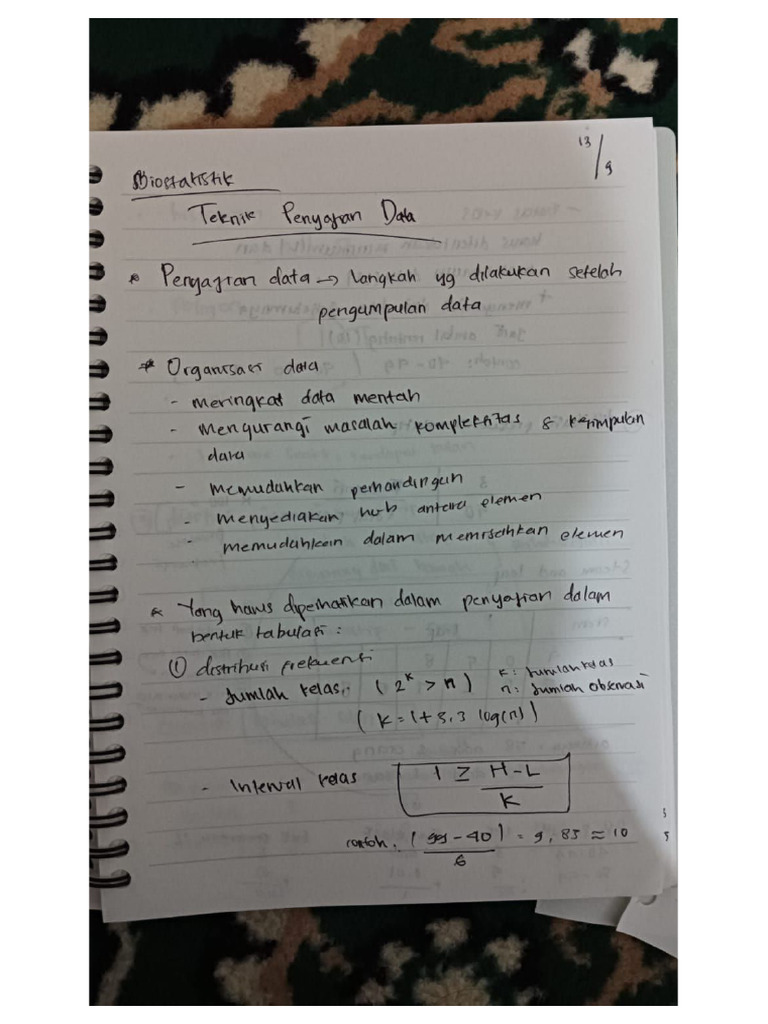 13/9
Biostatistik
Teknik Penyajian Data
* Penyajian data → langkah yg dilakukan setelah
pengumpulan data
* Organisasi data
- meringkat data mentah
- mengurangi masalah kompleksitas & kesimpulan
data
- memudahkan perbandingan
- menyediakan hub antara elemen
- memudahkan dalam memisahkan elemen
* Yang harus diperhatikan dalam penyajian dalam
bentuk tabulasi :
① distribusi frekuensi
- Jumlah kelas : ( 2^k > n ) k : Jumlah kelas
n : Jumlah observasi
( k = 1 + 3,3 log(n) )
- Interval kelas I ≥ H - L / K
contoh. ( 99 - 40 ) / 6 = 9,83 ≈ 10